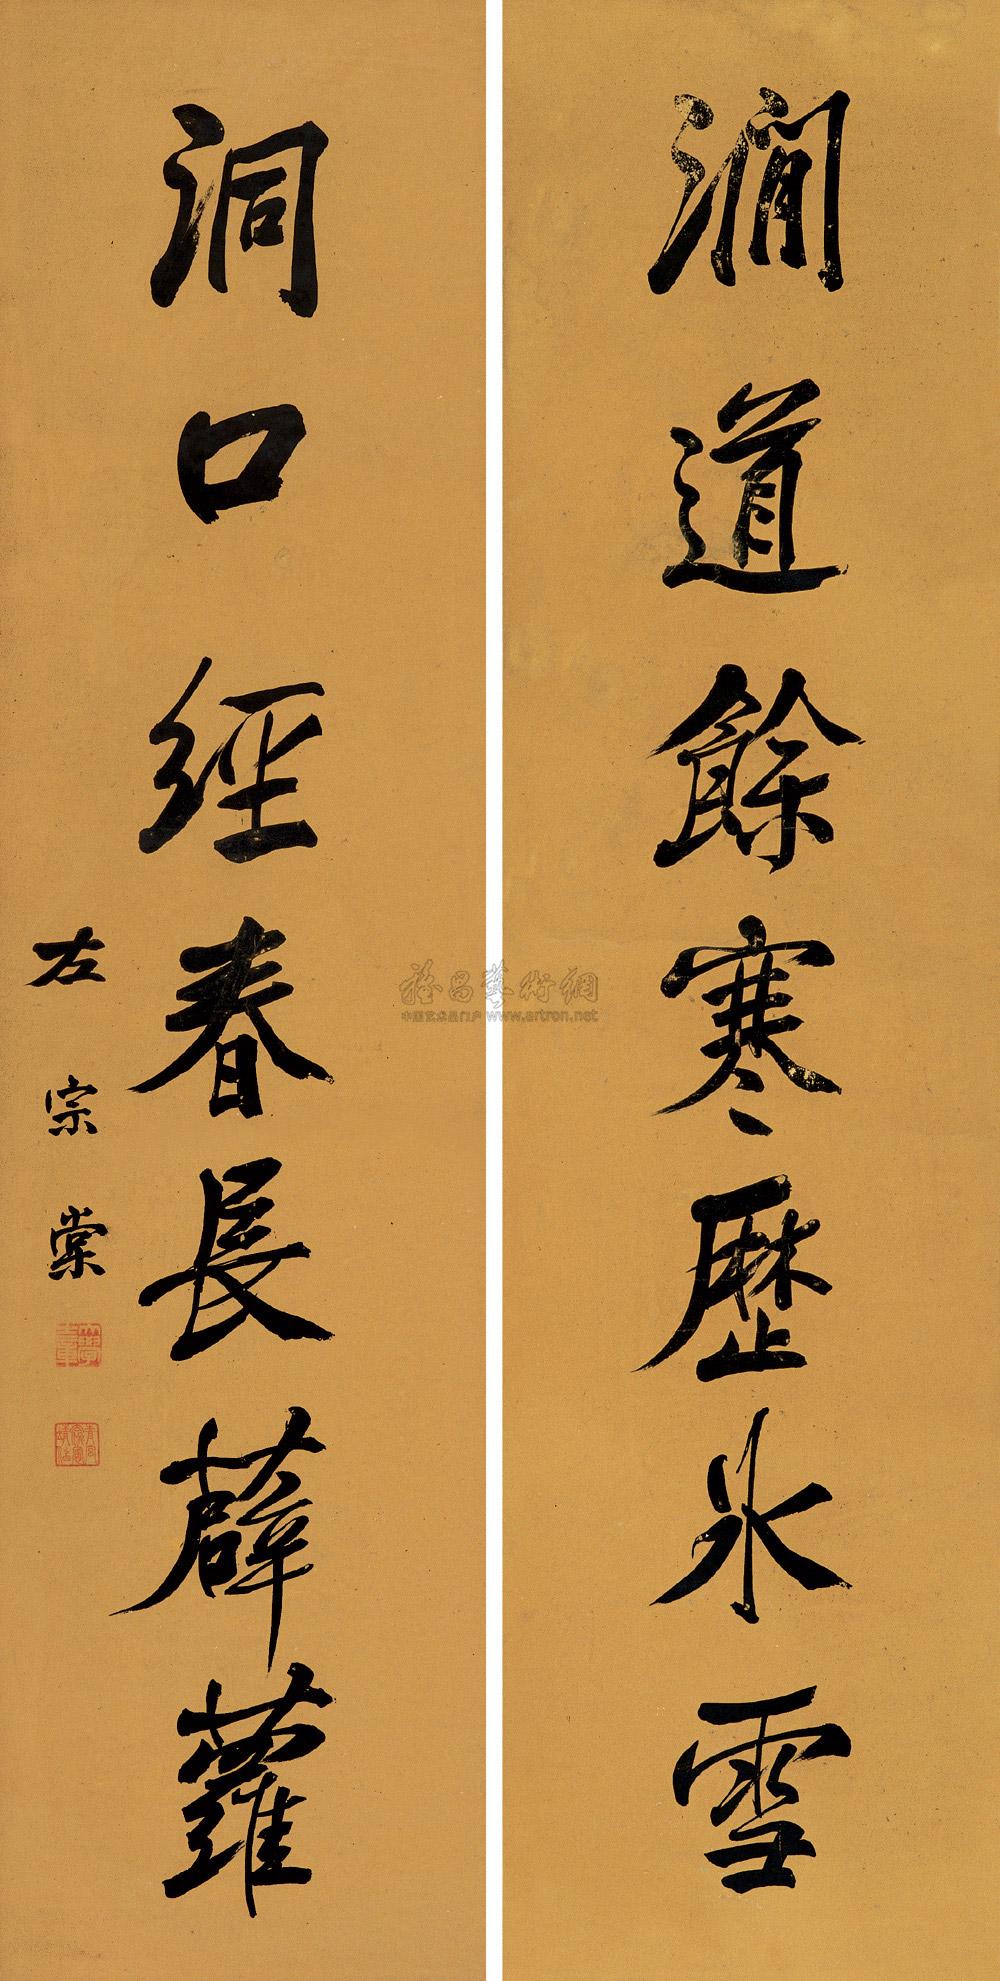 澗道餘寒歷冰雪
洞口經春長薜蘿
左宗棠
中国艺术品门户 www.artron.net